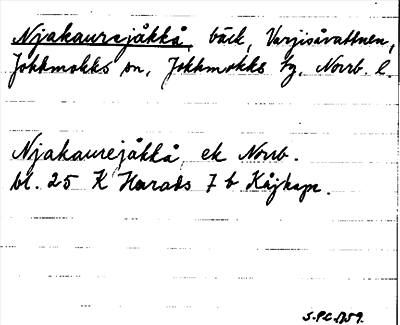 Njakaurejåkkå, bäck, Varjisåvattnen,
Jokkmokks sn, Jokkmokks tg. Norrb. l.
Njakaurejåkkå, ek Norrb.
bl. 25 K Harads 7 b Kåjkape.
S.P.C. 1959.